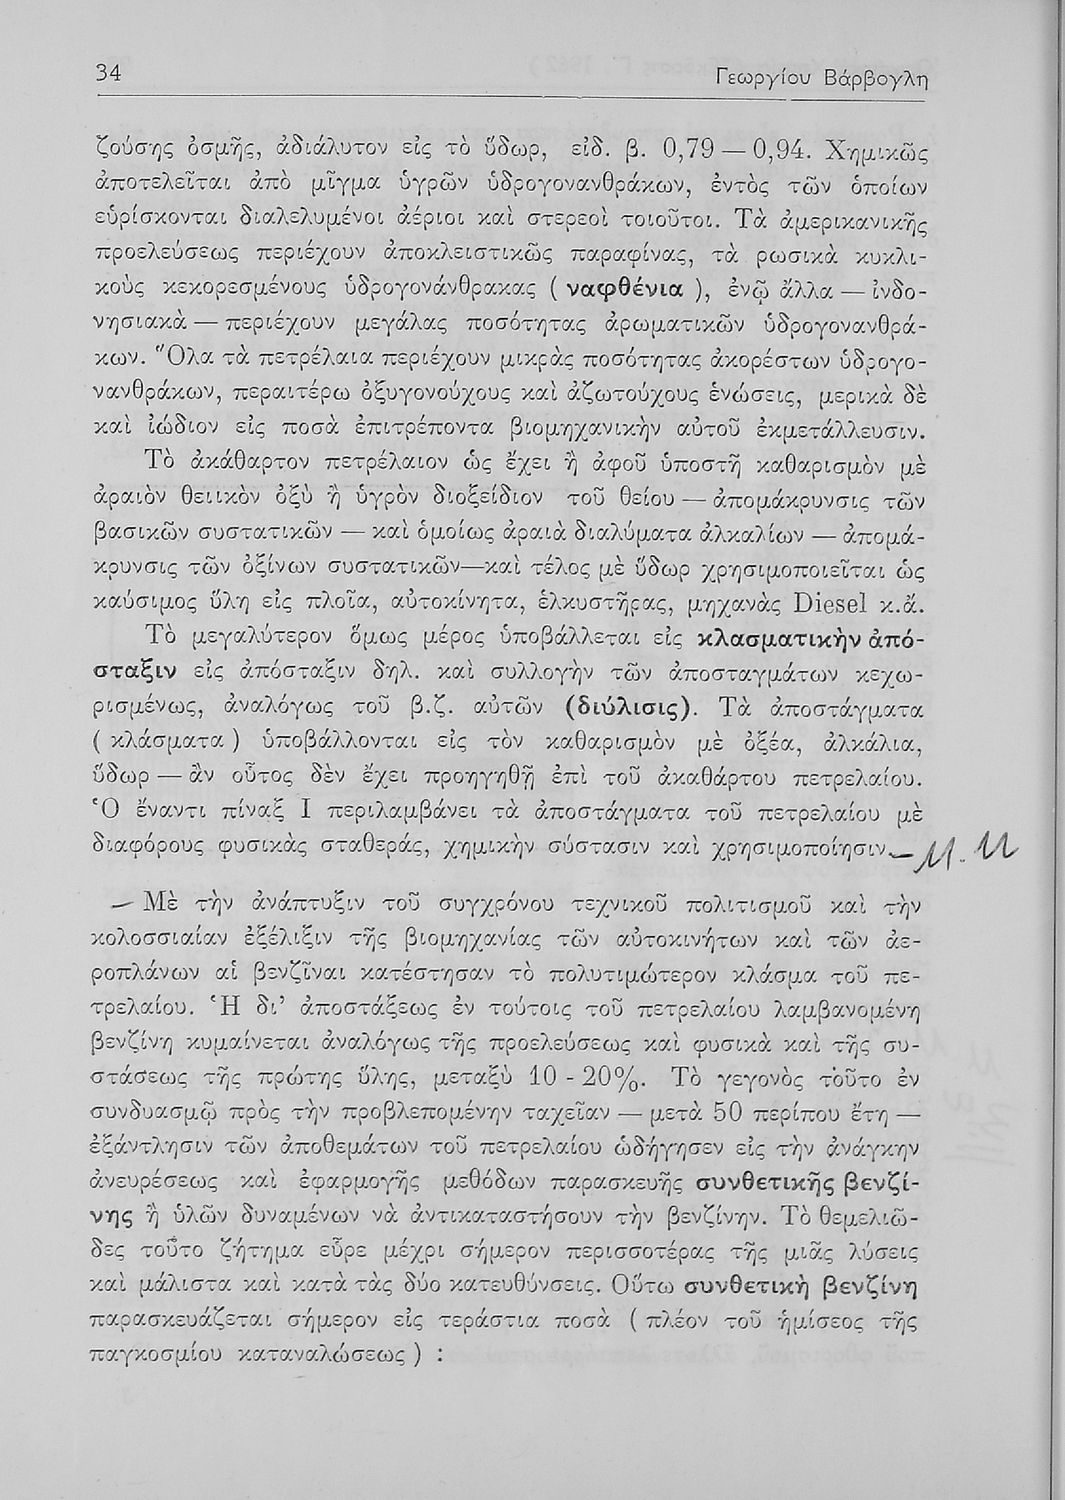 34
Γεωργίου Βάρβογλη
ζούσης ὀσμῆς, ἀδιάλυτον εἰς τὸ ὕδωρ, εἰδ. β. 0,79 — 0,94. Χημικῶς
ἀποτελεῖται ἀπὸ μῖγμα ὑγρῶν ὑδρογονανθράκων, ἐντὸς τῶν ὁποίων
εὑρίσκονται διαλελυμένοι ἀέριοι καὶ στερεοὶ τοιοῦτοι. Τὰ ἀμερικανικῆς
προελεύσεως περιέχουν ἀποκλειστικῶς παραφίνας, τὰ ρωσικὰ κυκλι-
κοὺς κεκορεσμένους ὑδρογονάνθρακας ( ναφθένια ), ἐνῷ ἄλλα — ἰνδο-
νησιακὰ — περιέχουν μεγάλας ποσότητας ἀρωματικῶν ὑδρογονανθρά-
κων. Ὅλα τὰ πετρέλαια περιέχουν μικρὰς ποσότητας ἀκορέστων ὑδρογο-
νανθράκων, περαιτέρω ὀξυγονούχους καὶ ἀζωτούχους ἑνώσεις, μερικὰ δὲ
καὶ ἰώδιον εἰς ποσὰ ἐπιτρέποντα βιομηχανικὴν αὐτοῦ ἐκμετάλλευσιν.
Τὸ ἀκάθαρτον πετρέλαιον ὡς ἔχει ἢ ἀφοῦ ὑποστῇ καθαρισμὸν μὲ
ἀραιὸν θειικὸν ὀξὺ ἢ ὑγρὸν διοξείδιον τοῦ θείου — ἀπομάκρυνσις τῶν
βασικῶν συστατικῶν — καὶ ὁμοίως ἀραιὰ διαλύματα ἀλκαλίων — ἀπομά-
κρυνσις τῶν ὀξίνων συστατικῶν—καὶ τέλος μὲ ὕδωρ χρησιμοποιεῖται ὡς
καύσιμος ὕλη εἰς πλοῖα, αὐτοκίνητα, ἑλκυστῆρας, μηχανὰς Diesel κ.ἄ.
Τὸ μεγαλύτερον ὅμως μέρος ὑποβάλλεται εἰς κλασματικὴν ἀπό-
σταξιν εἰς ἀπόσταξιν δηλ. καὶ συλλογὴν τῶν ἀποσταγμάτων κεχω-
ρισμένως, ἀναλόγως τοῦ β.ζ. αὐτῶν (διύλισις). Τὰ ἀποστάγματα
( κλάσματα ) ὑποβάλλονται εἰς τὸν καθαρισμὸν μὲ ὀξέα, ἀλκάλια,
ὕδωρ — ἂν οὗτος δὲν ἔχει προηγηθῆ ἐπὶ τοῦ ἀκαθάρτου πετρελαίου.
Ὁ ἔναντι πίναξ I περιλαμβάνει τὰ ἀποστάγματα τοῦ πετρελαίου μὲ
διαφόρους φυσικὰς σταθεράς, χημικὴν σύστασιν καὶ χρησιμοποίησιν.
— Μὲ τὴν ἀνάπτυξιν τοῦ συγχρόνου τεχνικοῦ πολιτισμοῦ καὶ τὴν
κολοσσιαίαν ἐξέλιξιν τῆς βιομηχανίας τῶν αὐτοκινήτων καὶ τῶν ἀε-
ροπλάνων αἱ βενζῖναι κατέστησαν τὸ πολυτιμώτερον κλάσμα τοῦ πε-
τρελαίου. Ἡ δι' ἀποστάξεως ἐν τούτοις τοῦ πετρελαίου λαμβανομένη
βενζίνη κυμαίνεται ἀναλόγως τῆς προελεύσεως καὶ φυσικὰ καὶ τῆς συ-
στάσεως τῆς πρώτης ὕλης, μεταξὺ 10 - 20%. Τὸ γεγονὸς τοῦτο ἐν
συνδυασμῷ πρὸς τὴν προβλεπομένην ταχεῖαν — μετὰ 50 περίπου ἔτη —
ἐξάντλησιν τῶν ἀποθεμάτων τοῦ πετρελαίου ὡδήγησεν εἰς τὴν ἀνάγκην
ἀνευρέσεως καὶ ἐφαρμογῆς μεθόδων παρασκευῆς συνθετικῆς βενζί-
νης ἢ ὑλῶν δυναμένων νὰ ἀντικαταστήσουν τὴν βενζίνην. Τὸ θεμελιῶ-
δες τοῦτο ζήτημα εὗρε μέχρι σήμερον περισσοτέρας τῆς μιᾶς λύσεις
καὶ μάλιστα καὶ κατὰ τὰς δύο κατευθύνσεις. Οὕτω συνθετικὴ βενζίνη
παρασκευάζεται σήμερον εἰς τεράστια ποσὰ ( πλέον τοῦ ἡμίσεος τῆς
παγκοσμίου καταναλώσεως ) :